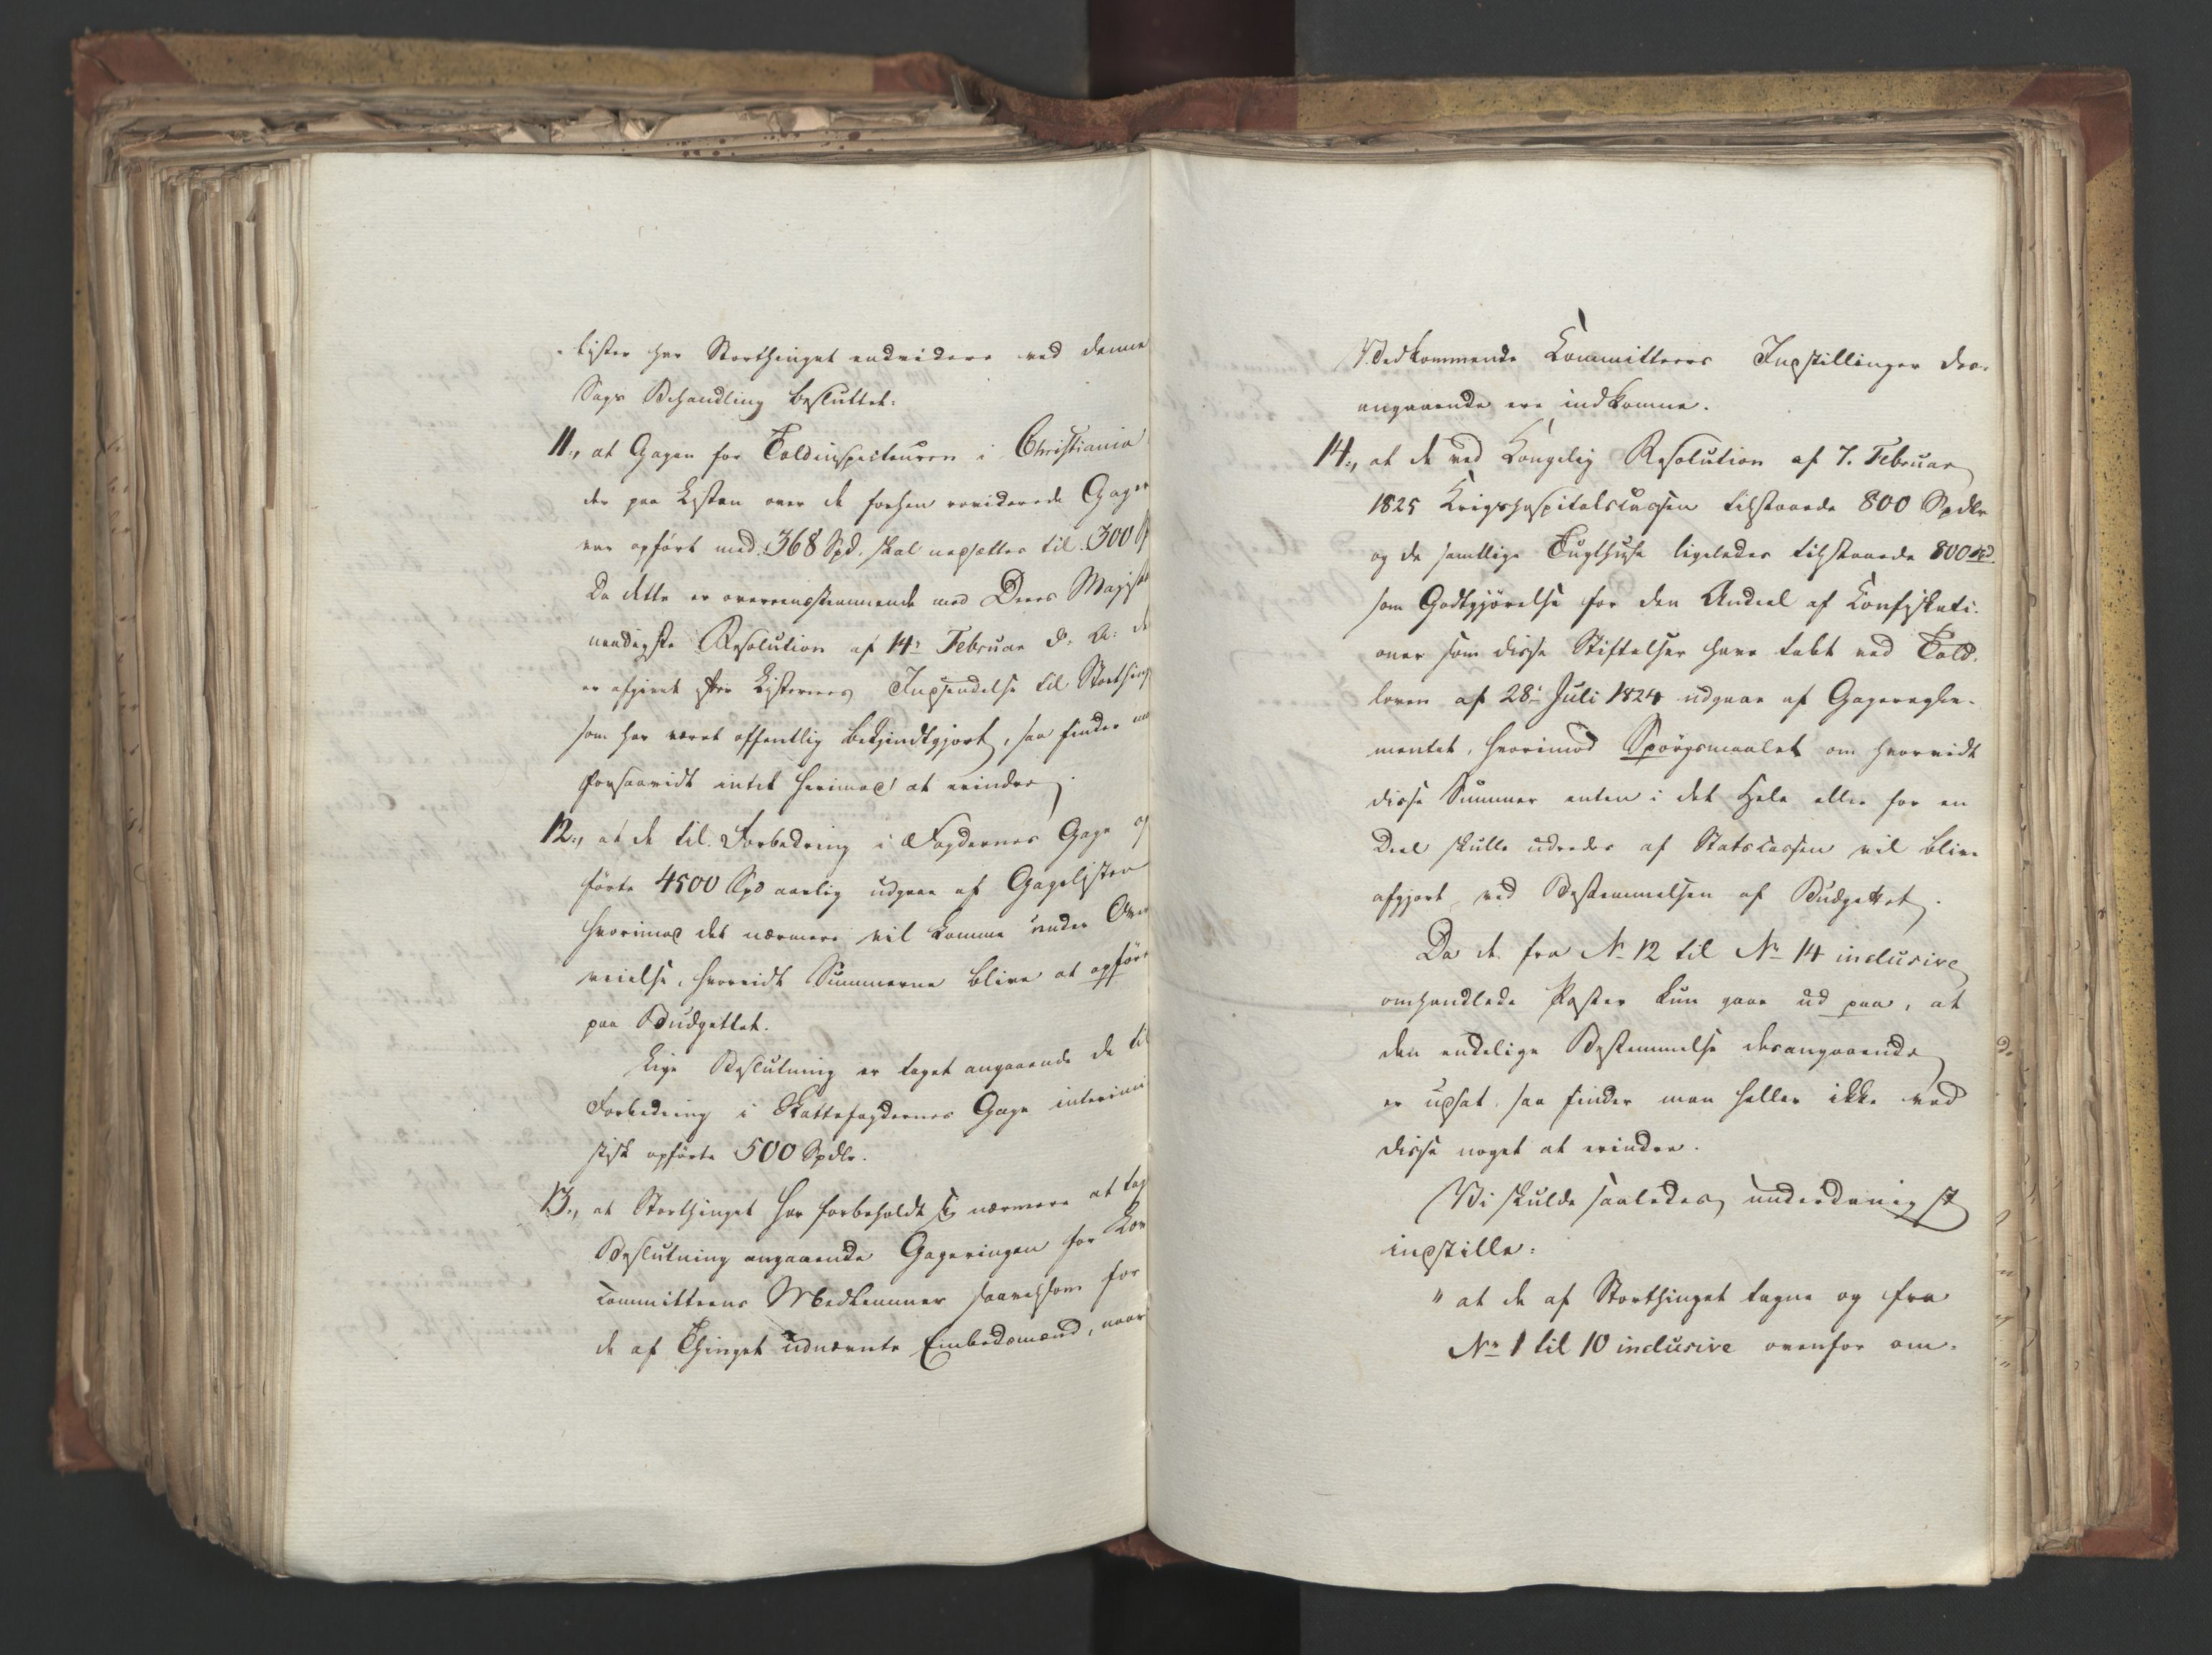 - lister har Storthinget endvidere ved denne
Sags Behandling besluttet:
11., at Gagen for Toldinspecteuren i Christiania
der paa Listen over de forhen reviderede Gager
var opført med 368 Spd. skal nedsættes til 300
Da dette er overeensstemmende med Deres Majest
naadigste Resolution af 14: Februar d. A: de
er afgivet efter Listernes Indsendelse til Storthing
som har været offentlig bekjendtgjort, saa finder
forsaavidt intet herimod at erindre.
12., at de til Forbedring i Fogdernes Gage op
førte 4500 Spd aarlig udgaae af Gagelisten
hvorimod det nærmere vil komme under Over
veielse, hvorvidt Summerne blive at opføre
paa Budgettet.
Lige Beslutning er taget angaaende de til
Forbedring i Skattefogdernes Gage interimi
stisk opførte 500 Spdlr.
13., at Storthinget har forbeholdt sig nærmere at tag
Beslutning angaaende Gageringen for
Committeens Medlemmer saavelsom for
de af Thinget udnævnte Embedsmænd, naar
Vedkommende Committeers Indstillinger des-
angaaende ere indkomne.
14., at de ved Kongelig Resolution af 7. Februar
1825 Krigshospitalscassen tilstaaede 800 Spdlr
og de samtlige Tugthuse ligeledes tilstaaede 800
som Godtgjörelse for den Andeel af Confiskati-
oner som disse Stiftelser have tabt ved Told-
loven af 28: Juli 1824 udgaae af Gageregle-
mentet, hvorimod Spörgsmaalet om hvorvidt
disse Summer enten i det Hele eller for en
Deel skulle udredes af Statscassen vil blive
afgjort ved Bestemmelsen af Budgettet.
Da de fra No 12 til No 14 inclusive
omhandlede Poster kun gaae ud paa, at
den endelige Bestemmelse desangaaende
er udsat saa finder man heller ikke ved
disse noget at erindre.
Vi skulde saaledes underdanigst
indstille:
" at de af Storthinget tagne og fra
No 1 til 10 inclusive ovenfor om-